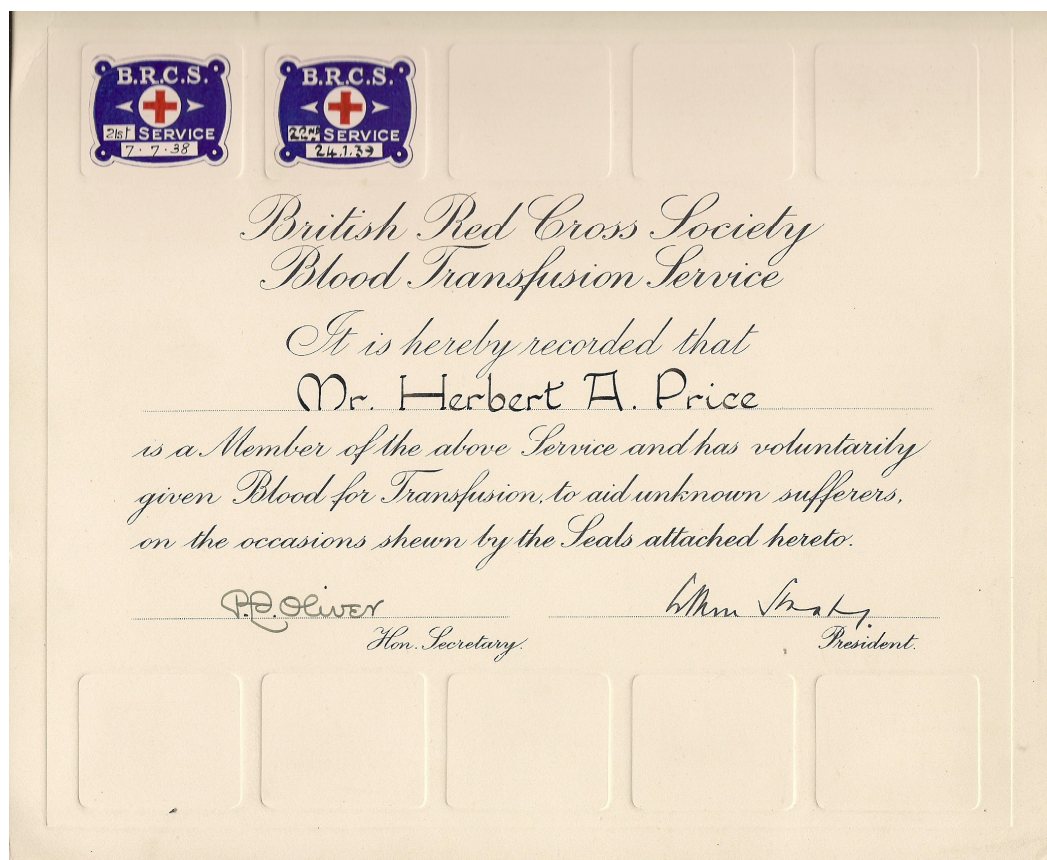 B.R.C.S.
21st SERVICE
7·7·38
B.R.C.S.
22nd SERVICE
24.1.39
British Red Cross Society
Blood Transfusion Service
It is hereby recorded that
Mr. Herbert A. Price
is a Member of the above Service and has voluntarily
given Blood for Transfusion, to aid unknown sufferers,
on the occasions shewn by the Seals attached hereto.
P.L. Oliver
Hon. Secretary.
President.